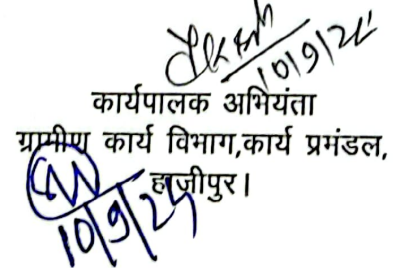 10/9/24
कार्यपालक अभियंता
ग्रामीण कार्य विभाग,कार्य प्रमंडल,
हाजीपुर।
10/9/24